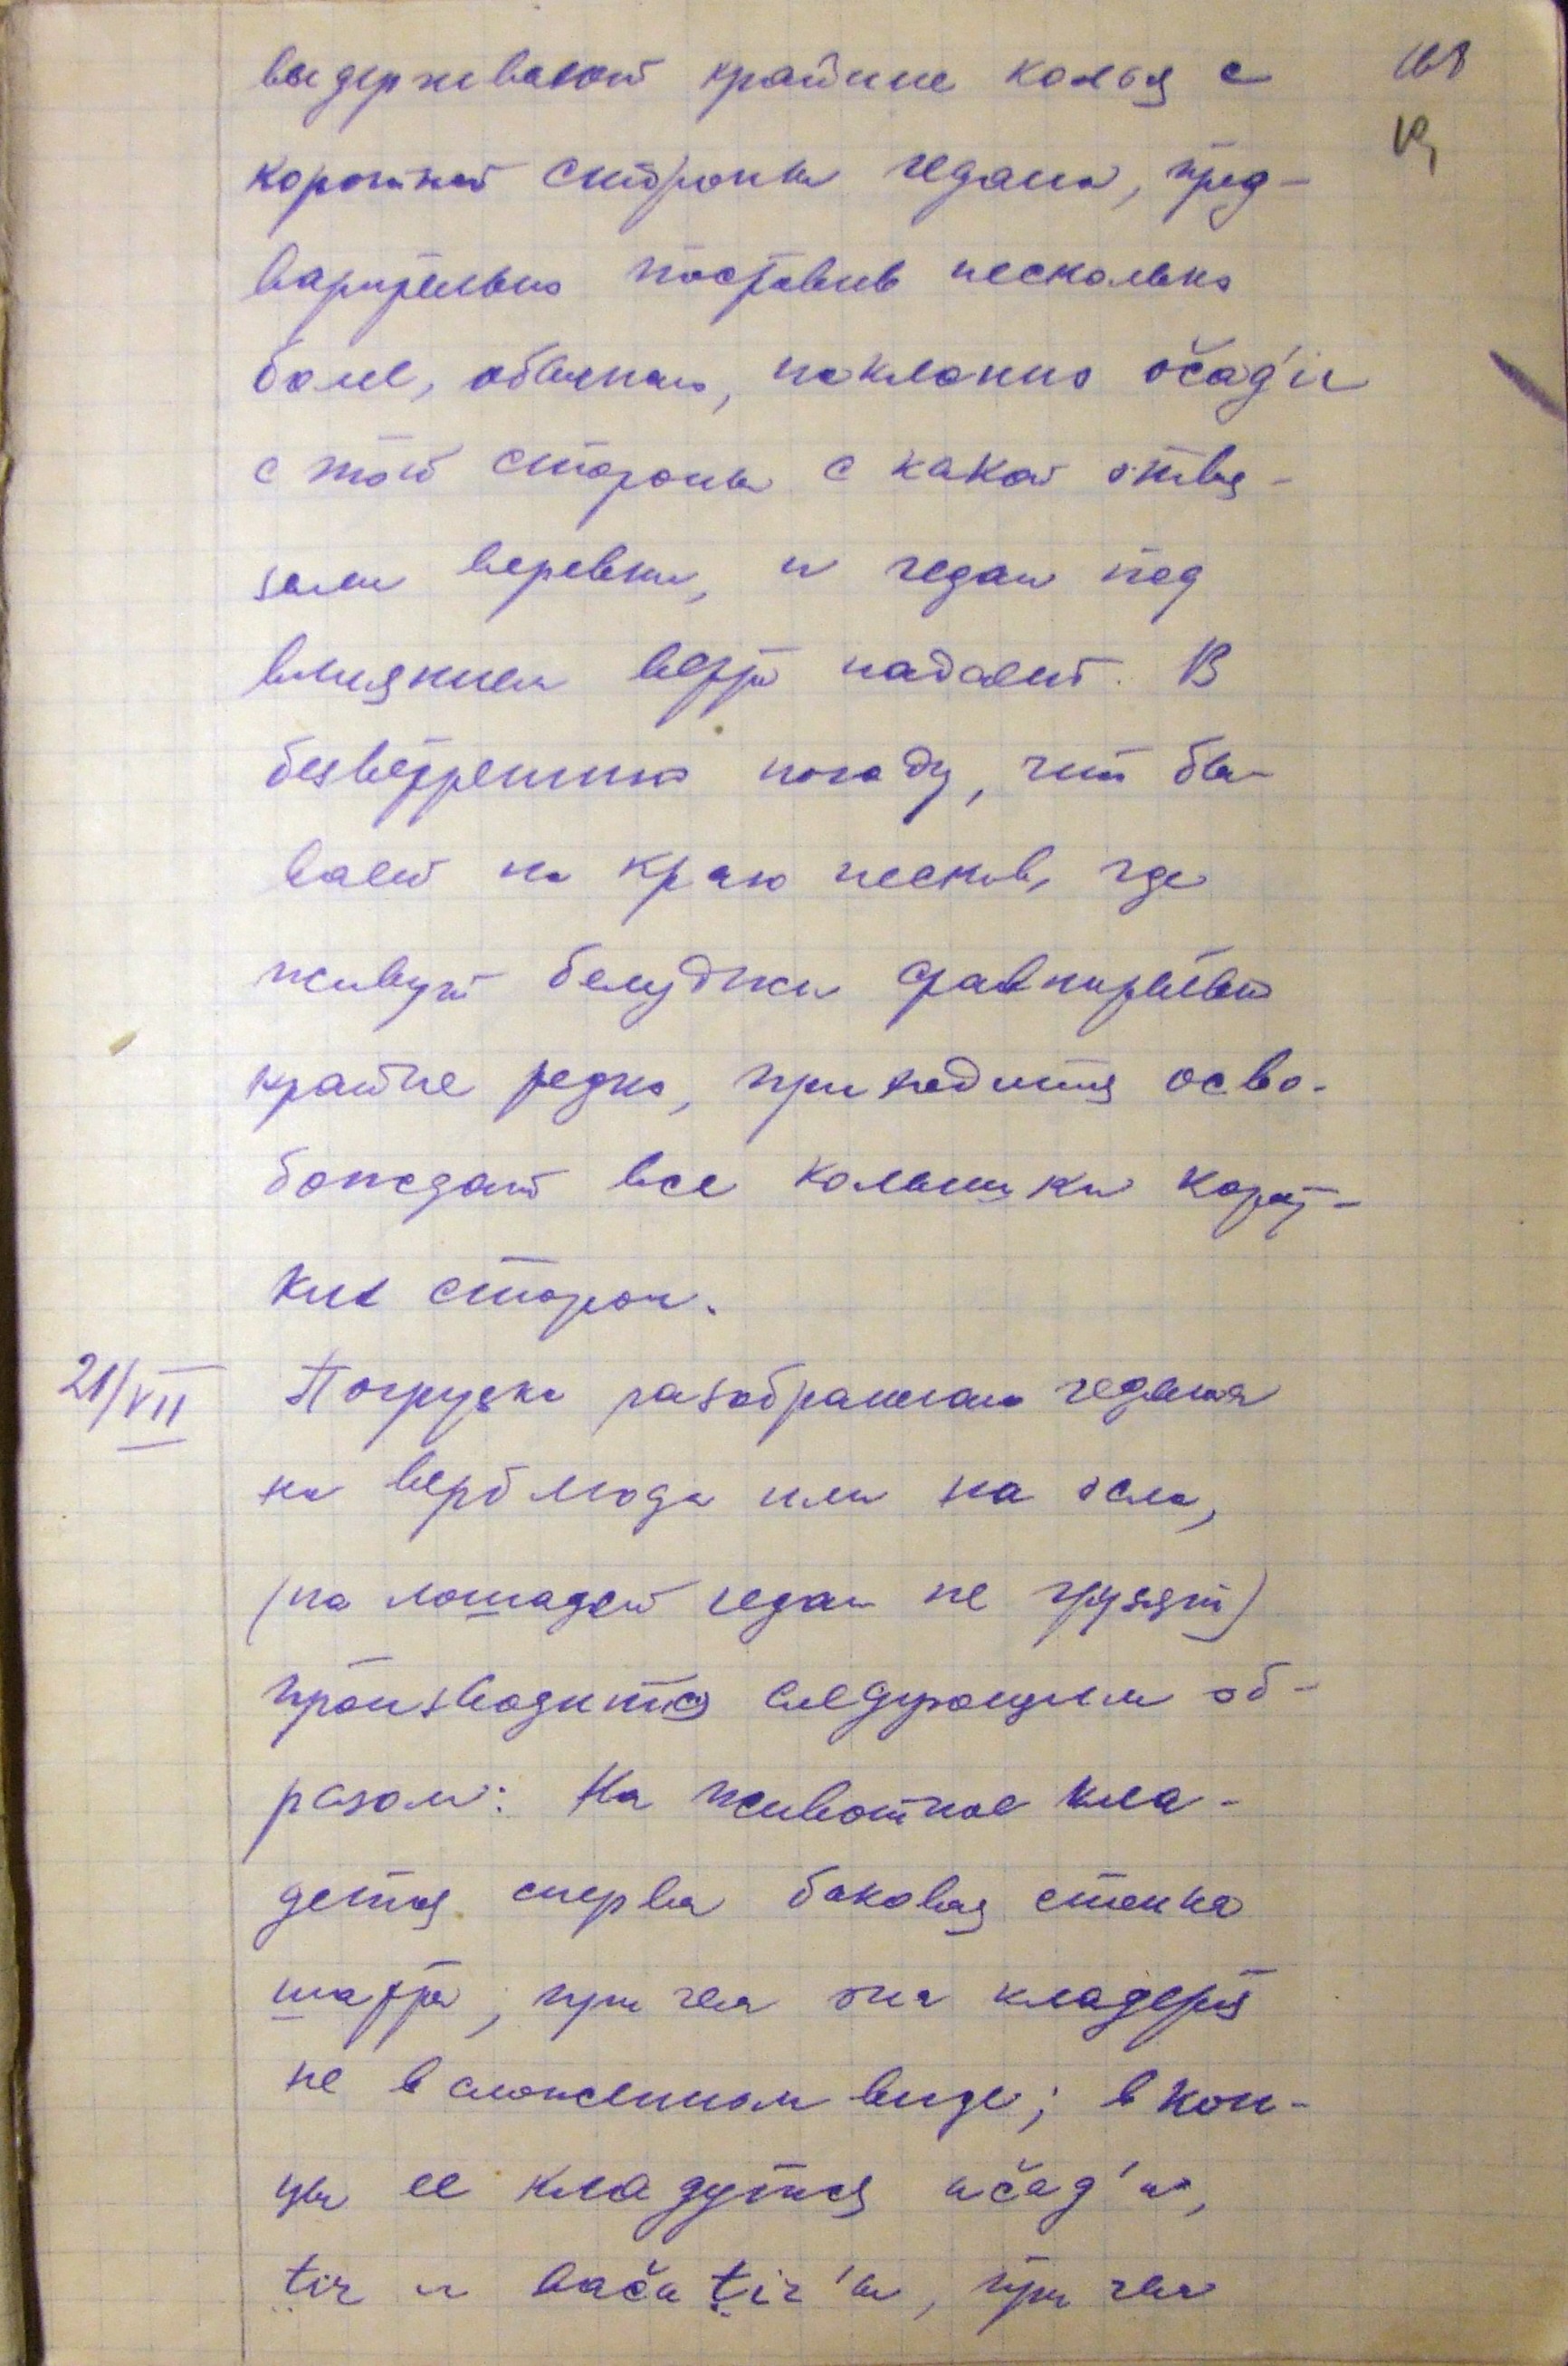 выдерживают крайние колья с
короткой стороны гедана, пред-
варительно поставив несколько
более, обычного, наклонно očag'и
с той стороны с какой отвя-
зали веревки, и гедан под
влиянием ветра падает. В
безветренную погоду, что бы-
вает на краю песков, где
живут белуджи сравнительно
крайне редко, приходится осво-
бождать все колышки корот-
ких сторон.
21/VII Погрузка разобранного гедана
на верблюда или на осла,
(на лошадей гедан не грузят)
производится следующим об-
разом: На животное кла-
дется сперва боковая стенка
шатра, при чем она кладется
не в сложенном виде; в кон-
цы ее кладутся
tir и bača tir'ы, при чем